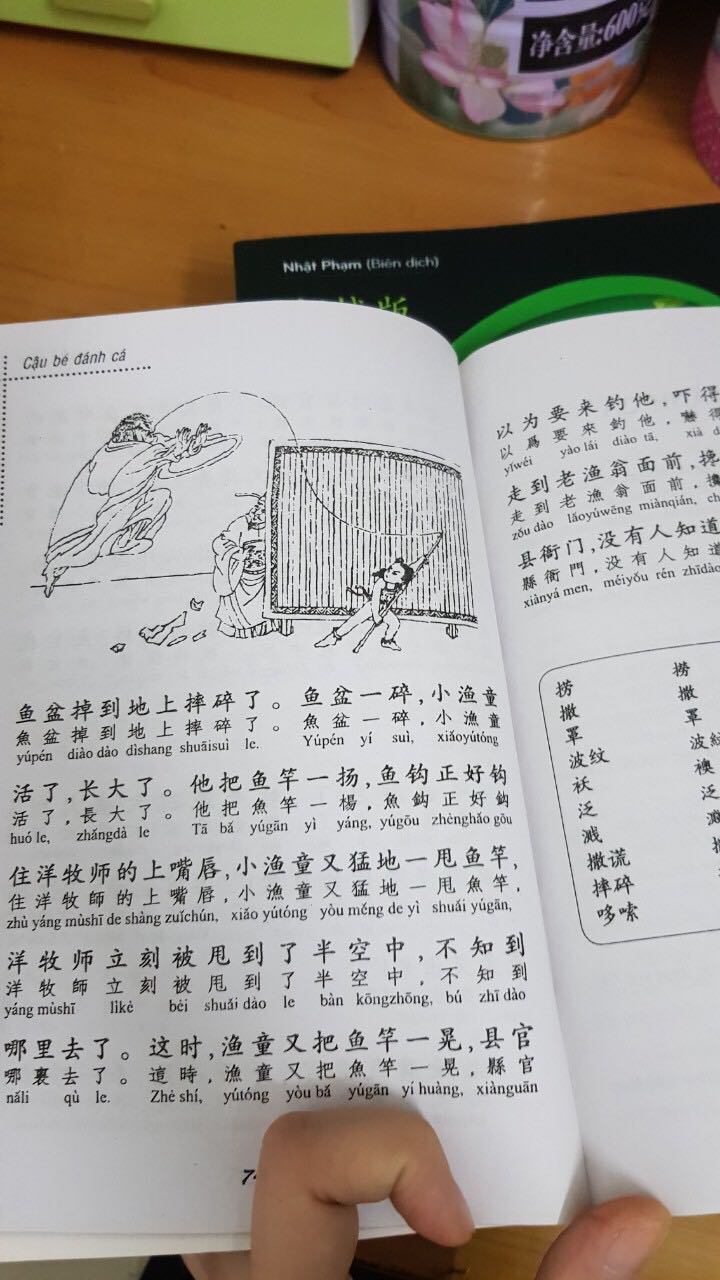 净含量:600克
Nhật Phạm (Biên dịch)
Cậu bé đánh cá
鱼盆掉到地上摔碎了。鱼盆一碎,小渔童
魚盆掉到地上摔碎了。魚盆一碎,小漁童
yúpén diào dào dìshang shuāisuì le. Yúpén yí suì, xiǎoyútóng
活了,长大了。他把鱼竿一扬,鱼钩正好钩
活了,長大了。他把魚竿一楊,魚鈎正好鈎
huó le, zhǎngdà le Tā bǎ yúgān yì yáng, yúgōu zhènghǎo gōu
住洋牧师的上嘴唇,小渔童又猛地一甩鱼竿,
住洋牧師的上嘴唇,小漁童又猛地一甩魚竿,
zhù yáng mùshī de shàng zuǐchún, xiǎo yútóng yòu měng de yì shuǎi yúgān,
洋牧师立刻被甩到了半空中,不知到
洋牧師立刻被甩到了半空中,不知到
yáng mùshī lìkè bèi shuǎi dào le bàn kōngzhōng, bú zhī dào
哪里去了。这时,渔童又把鱼竿一晃,县官
哪裏去了。這時,漁童又把魚竿一晃,縣官
nǎli qù le. Zhè shí, yútóng yòu bǎ yúgān yí huàng, xiànguān
以为要来钓他,吓得
以爲要來釣他,嚇得
yǐwéi yào lái diào tā, xià d
走到老渔翁面前,搀
走到老漁翁面前,攙
zǒu dào lǎoyúwēng miànqián, ch
县衙门,没有人知道
縣衙門,没有人知道
xiànyá men, méiyǒu rén zhīdào
捞 捞
撒 撒
罩 罩
波纹 波紋
袄 襖
泛 泛
溅 濺
撒谎
摔碎
哆嗦